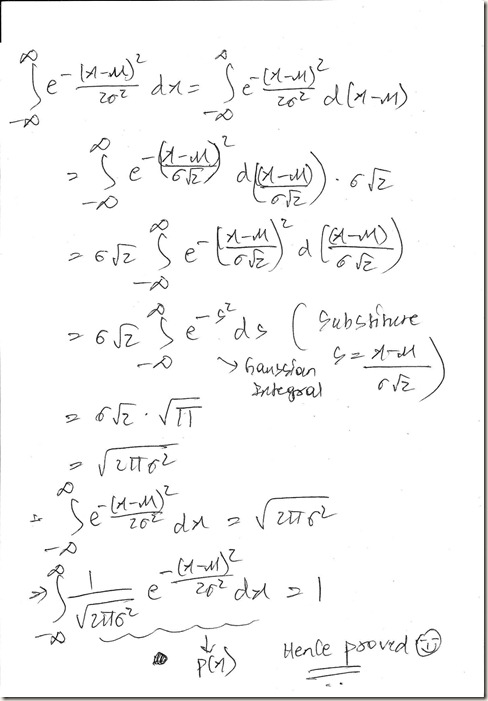 ∫_{-∞}^{∞} e^{-(x-μ)²/2σ²} dx = ∫_{-∞}^{∞} e^{-(x-μ)²/2σ²} d(x-μ)
= ∫_{-∞}^{∞} e^{-((x-μ)/σ√2)²} d((x-μ)/σ√2) · σ√2
= σ√2 ∫_{-∞}^{∞} e^{-((x-μ)/σ√2)²} d((x-μ)/σ√2)
= σ√2 ∫_{-∞}^{∞} e^{-s²} ds (Substiture s = (x-μ)/σ√2)
→ Gaussian Integral
= σ√2 · √π
= √(2πσ²)
∴ ∫_{-∞}^{∞} e^{-(x-μ)²/2σ²} dx = √(2πσ²)
⇒ ∫_{-∞}^{∞} 1/√(2πσ²) e^{-(x-μ)²/2σ²} dx = 1
↓ p(x) Hence proved ☺